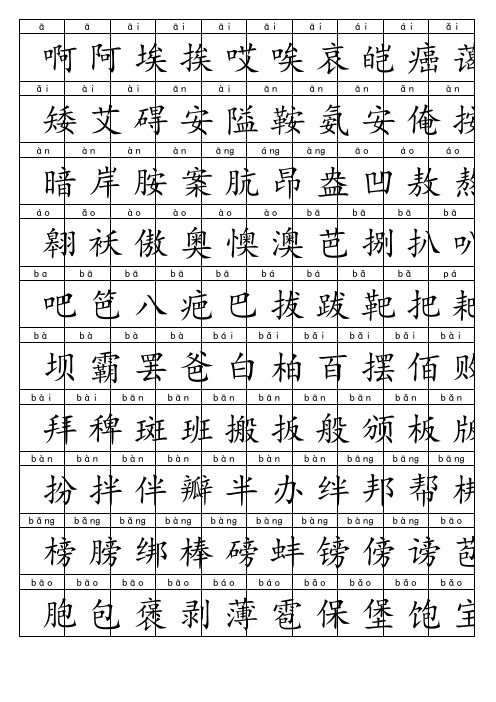 ā ā āi āi āi āi āi ái ái ǎi
啊 阿 埃 挨 哎 唉 哀 皑 癌 蔼
ǎi ài ài ān ān ān ān ān ǎn àn
矮 艾 碍 安 隘 鞍 氨 安 俺 按
àn àn àn àn āng áng àng āo áo áo
暗 岸 胺 案 肮 昂 盎 凹 敖 熬
áo ǎo ào ào ào ào bā bā bā bā
翱 袄 傲 奥 懊 澳 芭 捌 扒 叭
ba bā bā bā bā bá bá bǎ bǎ pá
吧 笆 八 疤 巴 拔 跋 靶 把 耙
bà bà bà bà bái bǎi bǎi bǎi bǎi bài
坝 霸 罢 爸 白 柏 百 摆 佰 败
bài bài bān bān bān bān bān bān bǎn bǎn
拜 稗 斑 班 搬 扳 般 颁 板 版
bàn bàn bàn bàn bàn bàn bàn bāng bāng bāng
扮 拌 伴 瓣 半 办 绊 邦 帮 梆
bǎng bǎng bǎng bàng bàng bàng bàng bàng bàng bāo
榜 膀 绑 棒 磅 蚌 镑 傍 谤 苞
bāo bāo bāo bāo báo báo bǎo bǎo bǎo bǎo
胞 包 褒 剥 薄 雹 保 堡 饱 宝